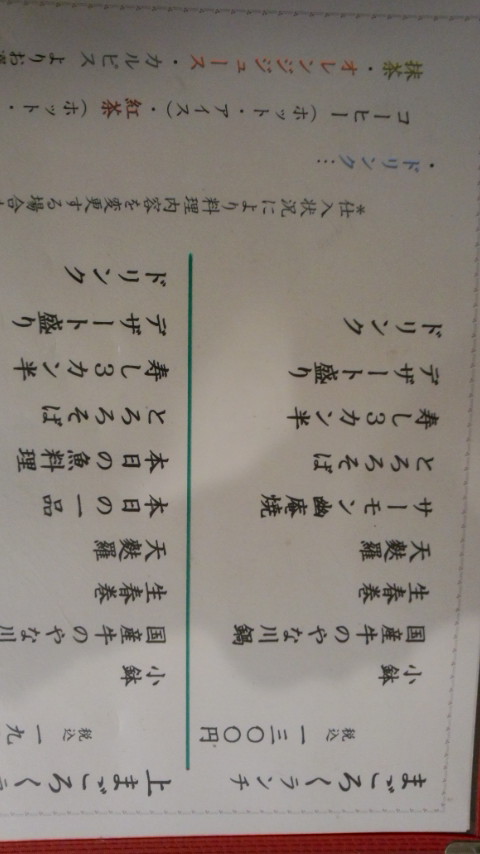 まごろくランチ
税込 一三〇〇円
小鉢
国産牛のやな川鍋
生春巻
天麩羅
サーモン幽庵焼
とろろそば
寿し3カン半
デザート盛り
ドリンク
上まごろくラ
税込 一九
小鉢
国産牛のやな川
生春巻
天麩羅
本日の一品
本日の魚料理
とろろそば
寿し3カン半
デザート盛り
ドリンク
※仕入状況により料理内容を変更する場合
・ドリンク…
コーヒー(ホット・アイス)・紅茶(ホット・
抹茶・オレンジジュース・カルピス よりお